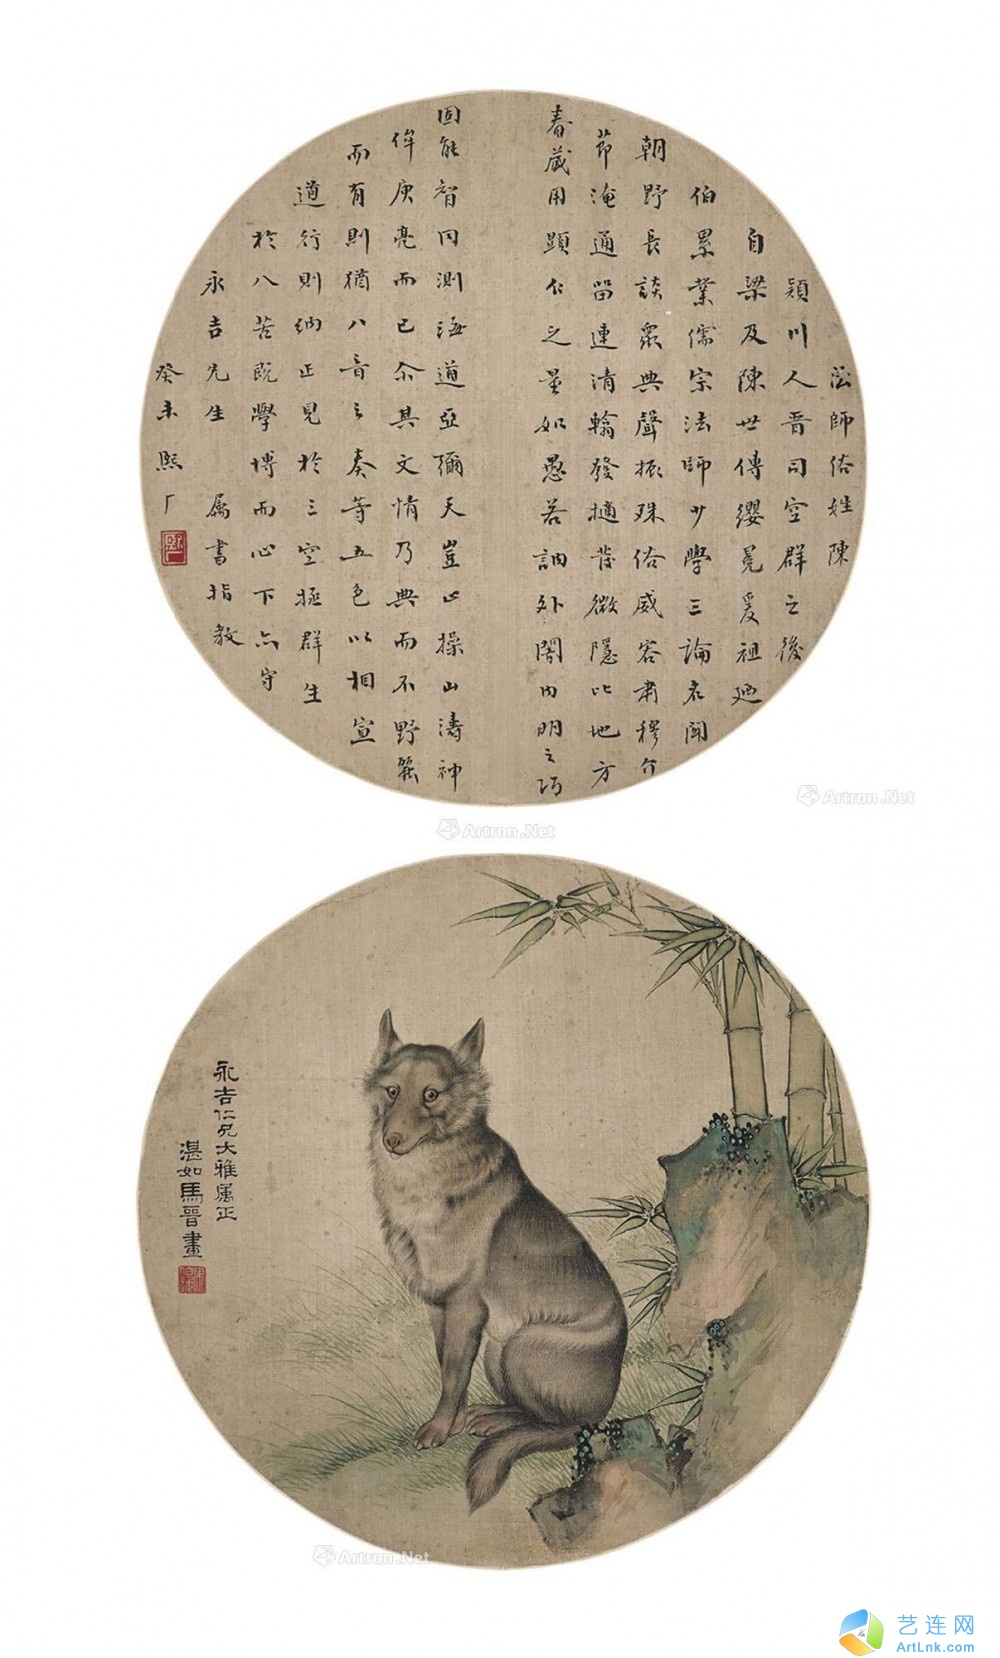 法師俗姓陳
穎川人晋司空群之後
自梁及陳世傳纓冕爰祖迺
伯累業儒宗法師少學三論名聞
朝野長談衆典聲振殊俗威容肅穆介
節淹通留連清翰發擿微隱比地方
春蔵用顯仁之量如愚若訥外闇內明之巧
固能智同測海道亞彌天豈止操山濤神
侔庾亮而已尒其文情乃典而不野
而有則猶八音之奏等五色以相宣
道行則納正見於三空拯群生
於八苦既學博而心下亦守
永吉先生 属書指教
癸未 熙厂
永吉仁兄大雅属正
湛如馬晉畫
Artron.Net
Artron.Net
Artron.Net
艺连网
ArtLnk.com